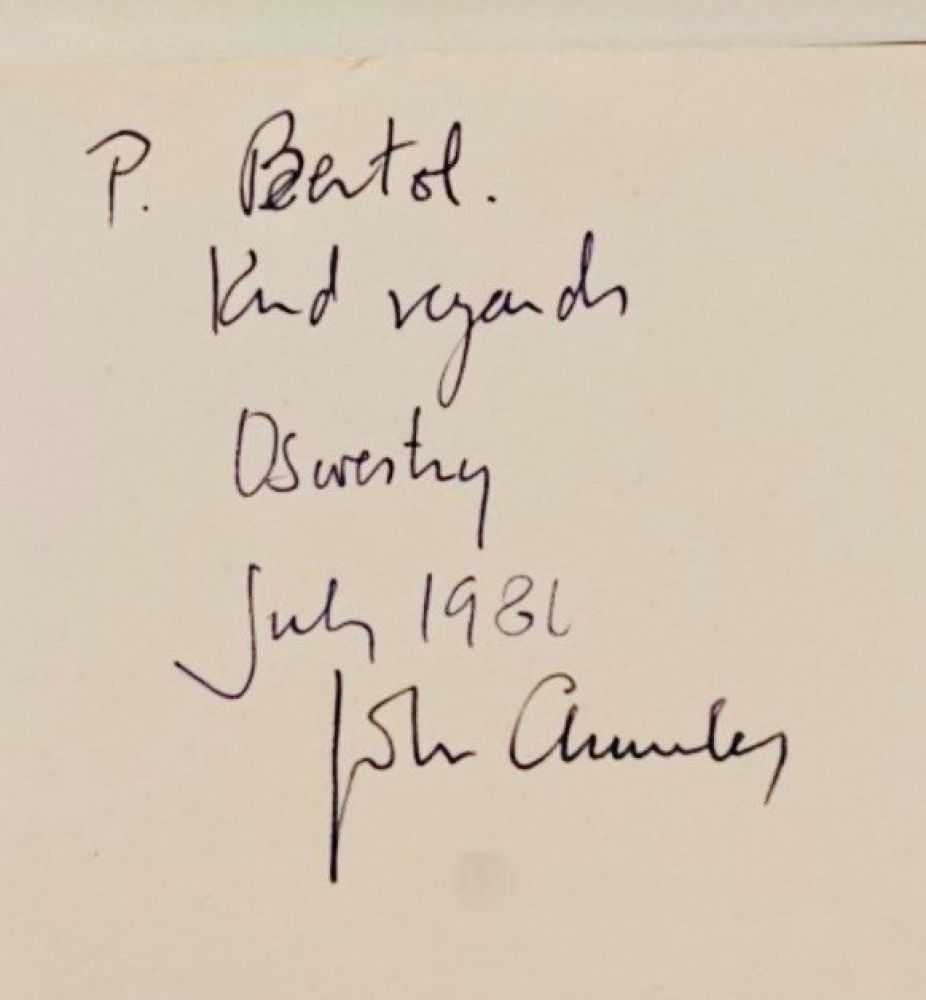 P. Bertol.
Kind regards
Oswestry
July 1981
John Charnley